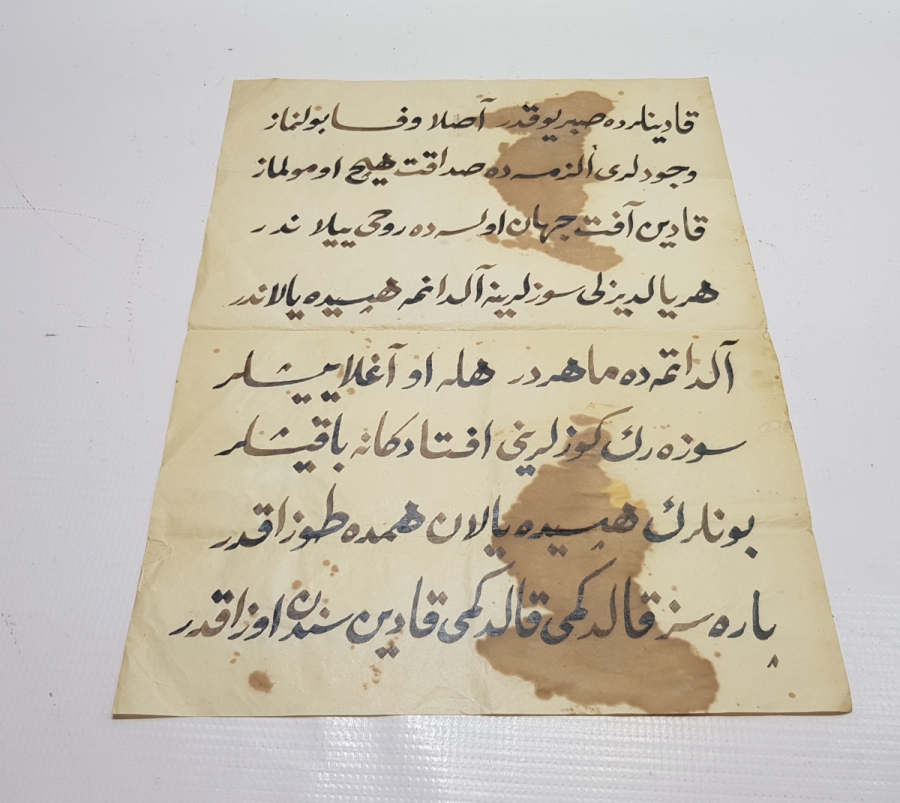 قادینلرده صبر یوقدر آصلا وفا بولنماز
وجودلری الزمسه ده صداقت هیچ اومولماز
قادین آفت جهان اولسه ده روحی ییلاندر
هر یالدیزلی سوزلرینه آلدانمه هپسیده یالاندر
آلداتمه ده ماهردر هله او آغلاییشلر
سوزه رك كوزلرینی افتادكانه باقیشلر
بونلرك هپسیده یالان همده طوزاقدر
پاره سز قالدكمی قالدكمی قادین سندن اوزاقدر